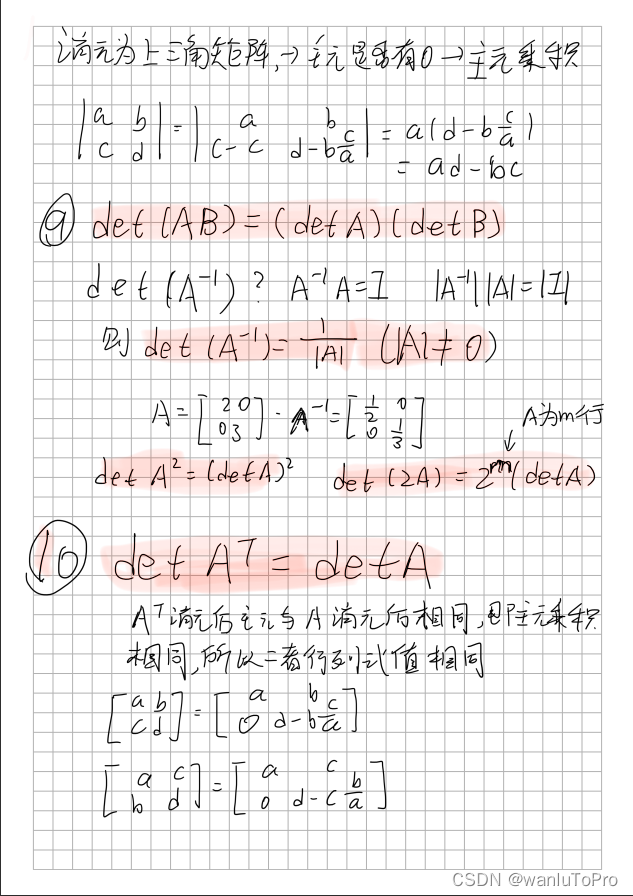 消元为上三角矩阵,→主元是否有0→主元乘积
|a b; c d| = |a b; c-c d-b c/a| = a(d-b c/a)
= ad-bc
⑨ det(AB)=(detA)(detB)
det(A⁻¹)? A⁻¹A=I |A⁻¹||A|=|I|
则 det(A⁻¹)= 1/|A| (|A|≠0)
A为m行
A=[2 0; 0 3] · A⁻¹=[1/2 0; 0 1/3]
det A²=(detA)² det(2A)=2ᵐ(detA)
⑩ det Aᵀ = detA
Aᵀ消元后主元与A消元后相同,即主元乘积
相同,所以二者行列式值相同
[a b; c d]=[a b; 0 d-b c/a]
[a c; b d]=[a c; 0 d-c b/a]
CSDN @wanluToPro